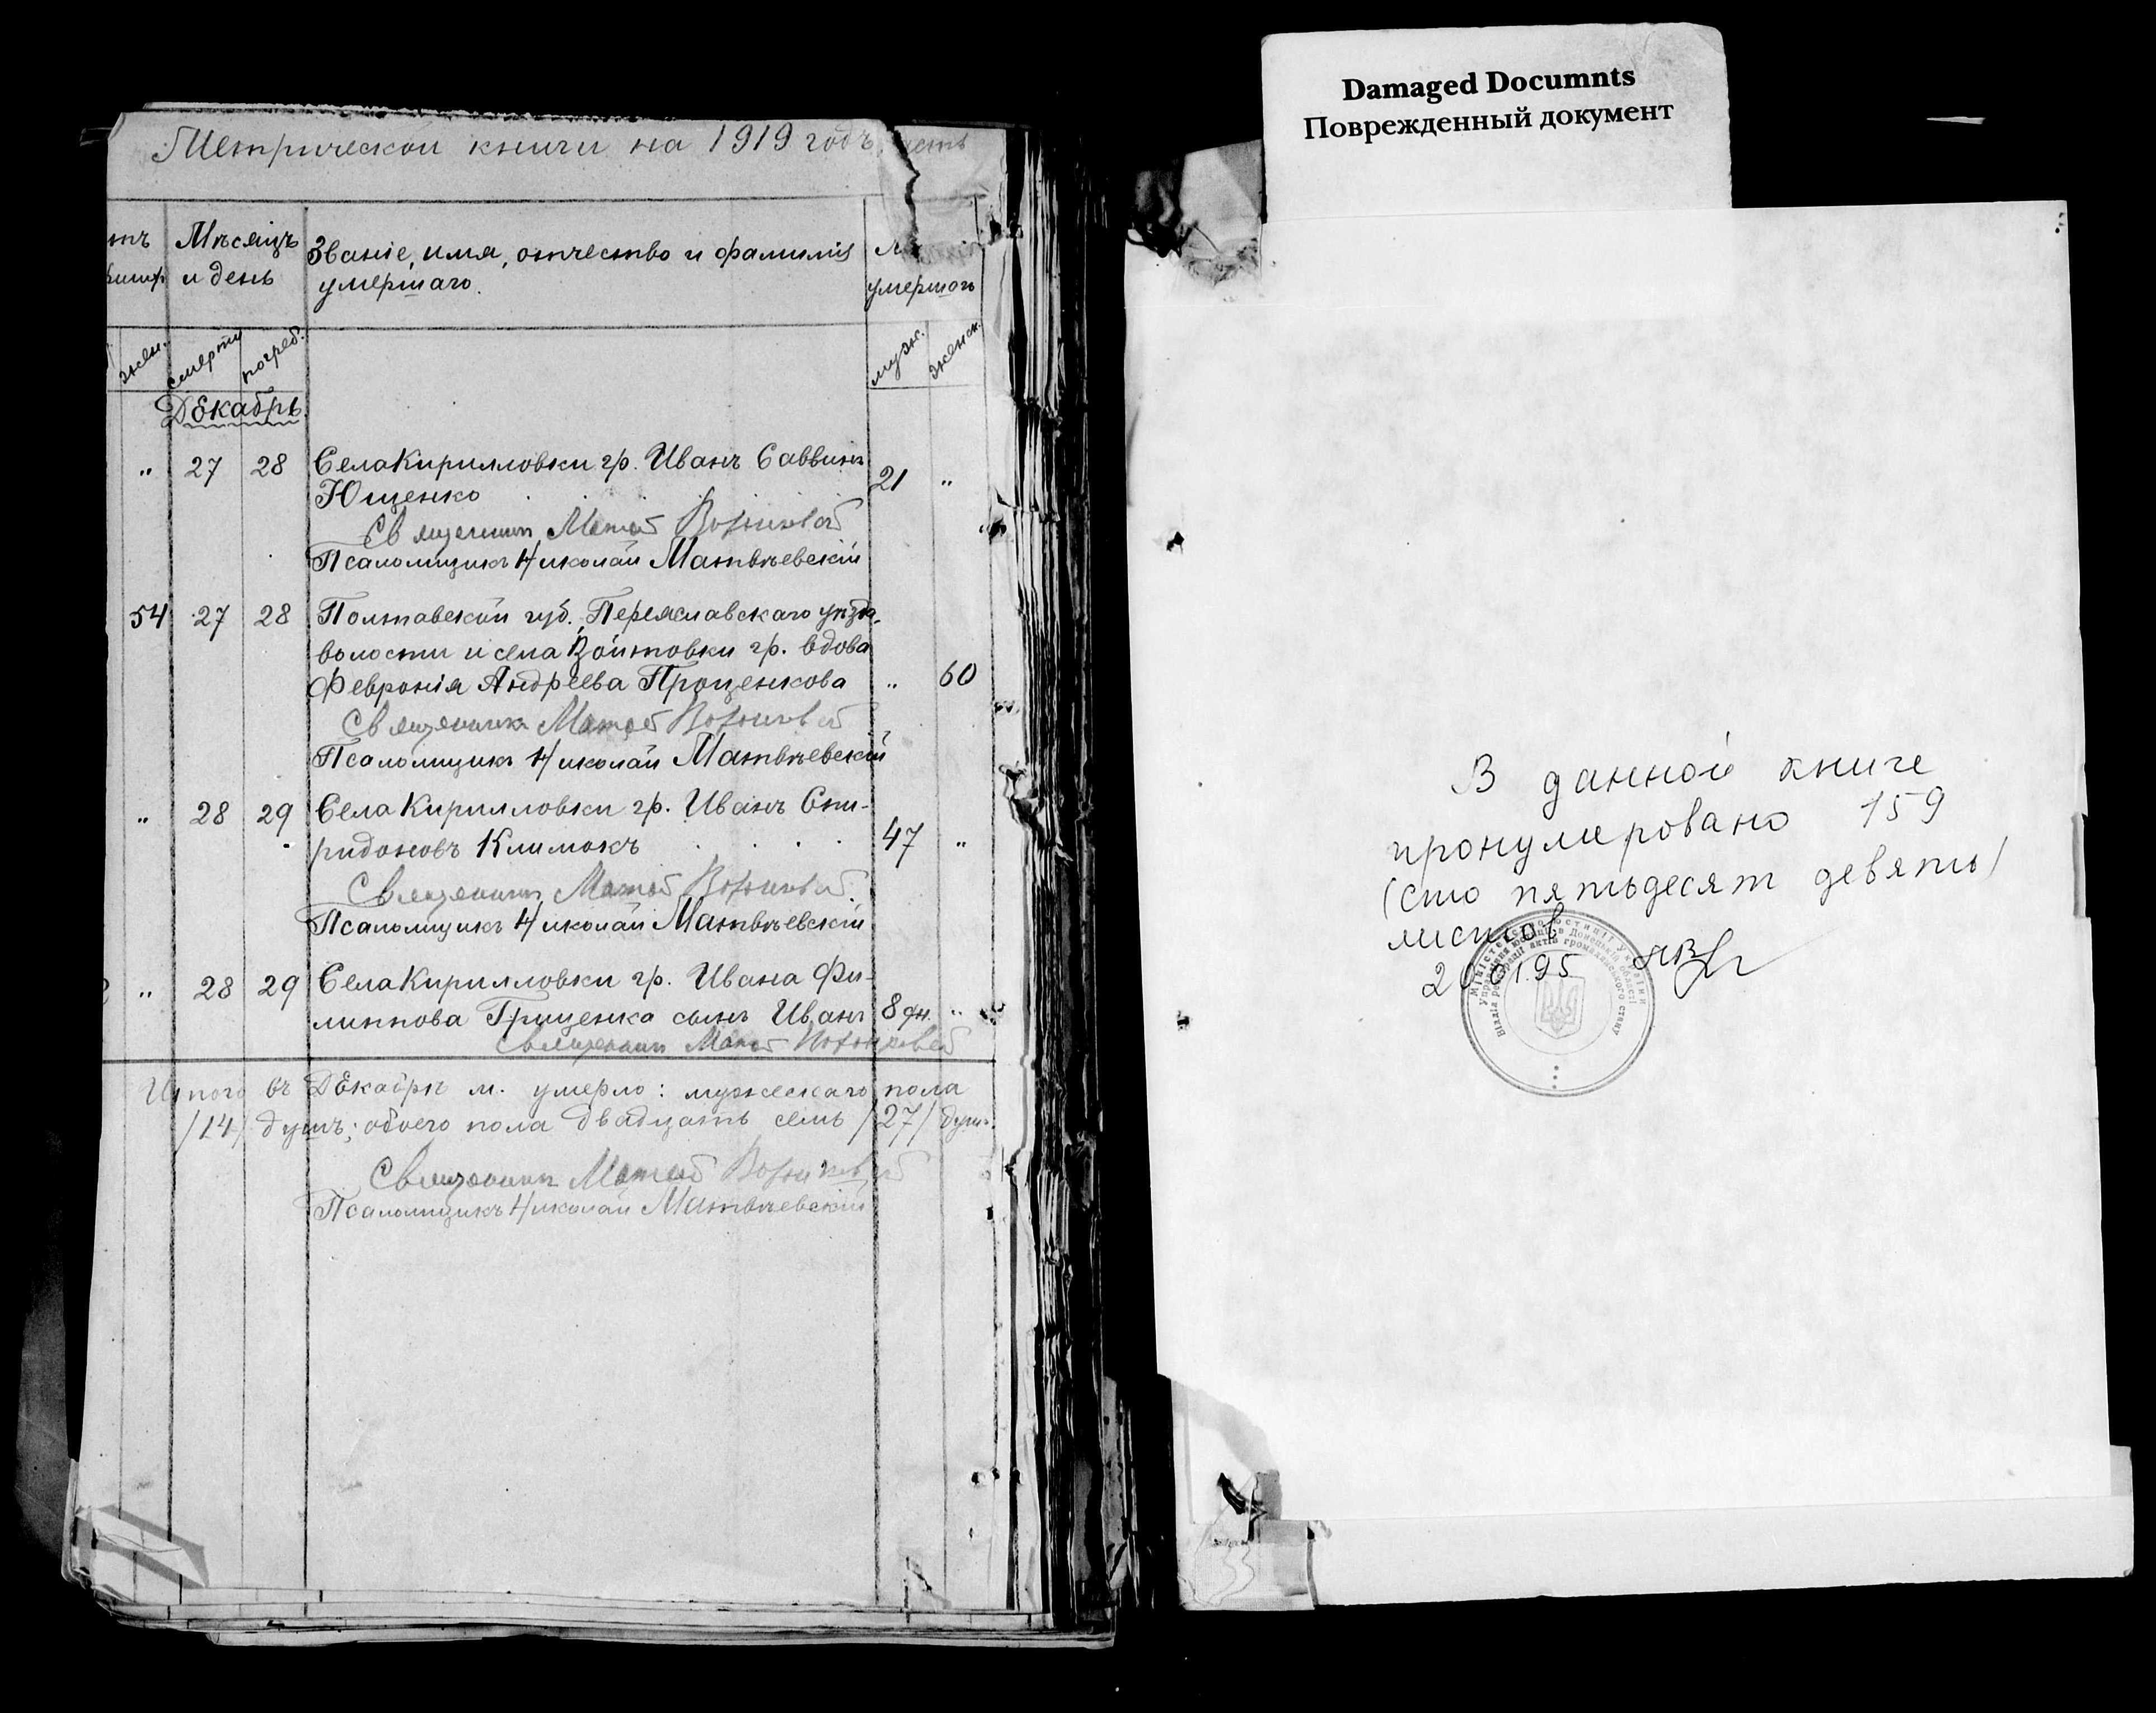 Метрической книги на 1919 годъ, часть
Мѣсяцъ
и день
Званіе, имя, отчество и фамилія
умершаго.
умершаго
жен.
смерти
погреб.
муж.
женск.
Декабрь.
" 27 28 Села Кирилловки гр. Иванъ Саввинъ
Ющенко 21 "
Священникъ
Псаломщикъ Николай Матвѣевскій
54 27 28 Полтавской губ. Переяславскаго уѣзда,
волости и села Войтовки гр. вдова
Февронія Андреева Проценкова " 60
Священникъ
Псаломщикъ Николай Матвѣевскій
" 28 29 Села Кирилловки гр. Иванъ Спи-
ридоновъ Климокъ 47 "
Священникъ
Псаломщикъ Николай Матвѣевскій
" 28 29 Села Кирилловки гр. Ивана Фи-
липпова Грищенка сынъ Иванъ 8 дн. "
Священникъ
Итого въ Декабрѣ м. умерло: мужескаго пола
/14/ душъ; обоего пола двадцать семь /27/ душъ.
Священникъ
Псаломщикъ Николай Матвѣевскій
Damaged Documnts
Поврежденный документ
В данной книге
пронумеровано 159
(сто пятьдесят девять)
листов
20.01.95
Міністерство юстиції України
Управління юстиції в Донецькій області
Відділ реєстрації актів громадянського стану